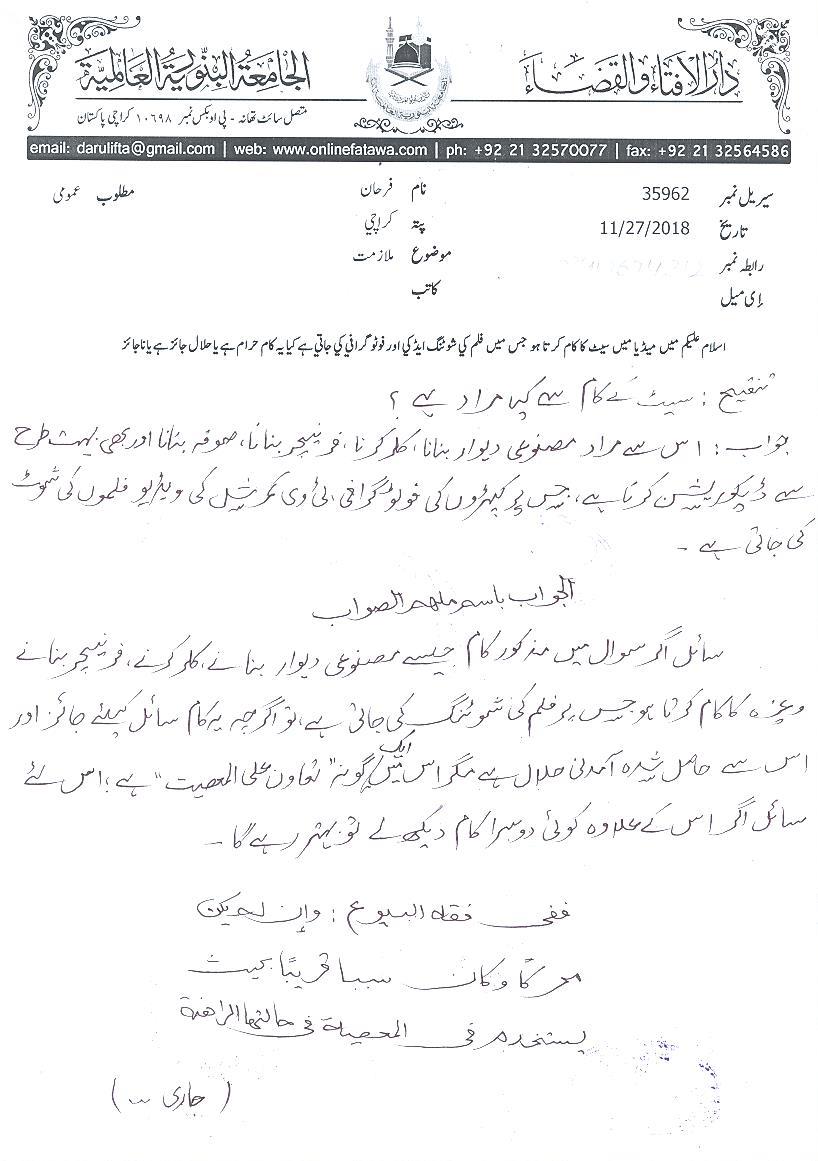 دار الافتاء والقضاء
الجامعة البنورية العالمية
متصل سائٹ تھانہ - پی او بکس نمبر ۱۰۶۹۸ کراچی پاکستان
email: darulifta@gmail.com | web: www.onlinefatawa.com | ph: +92 21 32570077 | fax: +92 21 32564586
سیریل نمبر 35962 نام فرحان مطلوب عمومی
تاریخ 11/27/2018 پتہ کراچي
رابطہ نمبر موضوع ملازمت
اِی میل کاتب
اسلام علیکم میں میڈیا میں سیٹ کا کام کرتا ہو جس میں فلم کی شوٹنگ ایڈ کی اور فوٹو گرافی کی جاتی ہے کیا یہ کام حرام ہے یا حلال جائز ہے یا ناجائز
تنقیح : سیٹ کے کام سے کیا مراد ہے ؟
جواب : اس سے مراد مصنوعی دیوار بنانا، کلر کرنا، فرنیچر بنانا، صوفہ بنانا اور بھی بہت طرح
سے ڈیکوریشن کرتا ہے، جس پر کپڑوں کی فوٹو گرافی، ٹی وی کمرشل کی ویڈیو فلموں کی شوٹ
کی جاتی ہے ۔
الجواب باسم ملہم الصواب
سائل اگر سوال میں مذکور کام جیسے مصنوعی دیوار بنانے، کلر کرنے، فرنیچر بنانے
وغیرہ کا کام کرتا ہو جس پر فلم کی شوٹنگ کی جاتی ہے، تو اگرچہ یہ کام سائل کیلئے جائز اور
اس سے حاصل شدہ آمدنی حلال ہے مگر اس میں ایک گونہ "تعاون علی المعصیت" ہے، اس لئے
سائل اگر اس کے علاوہ کوئی دوسرا کام دیکھ لے تو بہتر رہے گا ۔
ففی فقہ البیوع : وإن لم يكن
محركًا وكان سببا قريبًا بحيث
يستخدم في المعصية في حالتها الراهنة
( جاری ... )